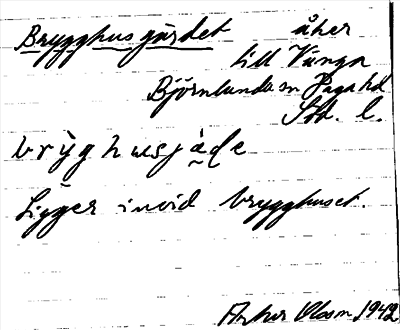 Brygghusgärdet åker
till Vånga
Björnlunda sn Daga hd
Stl. l.
brỳghusjä̀ḍe
Ligger invid brygghuset.
Olsson 1942